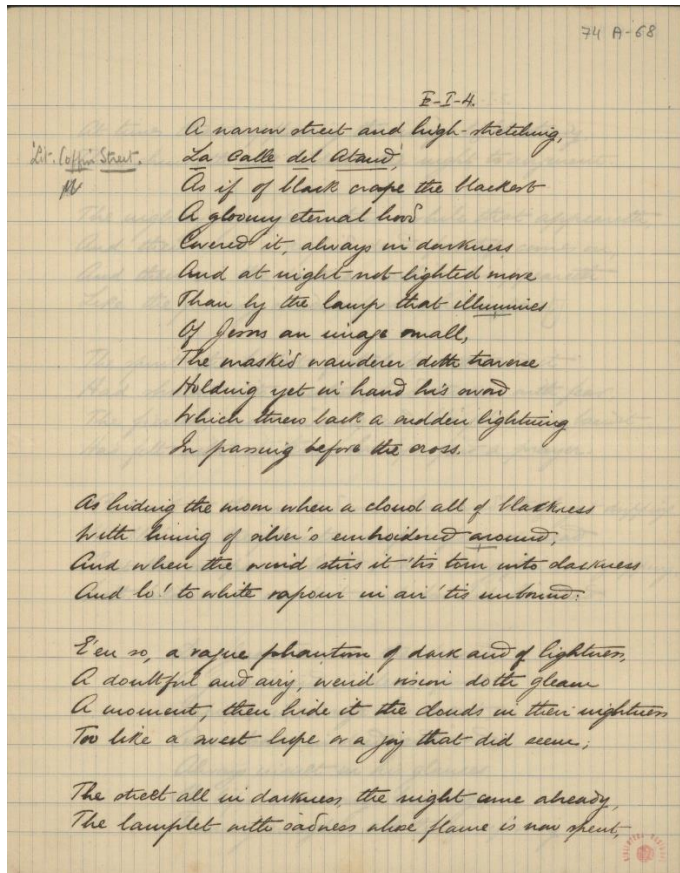 74 A-68
E-I-4.
A narrow street and high-stretching,
'Lit. Coffin Street.
La Calle del Ataud,
As if of black crape the blackest
A gloomy eternal hood
Covered it, always in darkness
And at night not lighted more
Than by the lamp that illumines
Of Jesus an image small,
The maskèd wanderer doth traverse
Holding yet in hand his sword
Which threw back a sudden lightning
In passing before the cross.
As hiding the moon when a cloud all of blackness
With lining of silver's embroidered around,
And when the wind stirs it 'tis torn into darkness
And lo! to white vapour in air 'tis unbound:
E'en so, a vague phantom of dark and of lightness,
A doubtful and airy, weird vision doth gleam
A moment, then hide it the clouds in their nightness
Too like a sweet hope or a joy that did seem;
The street all in darkness, the night come already,
The lamplet with sadness whose flame is now spent,